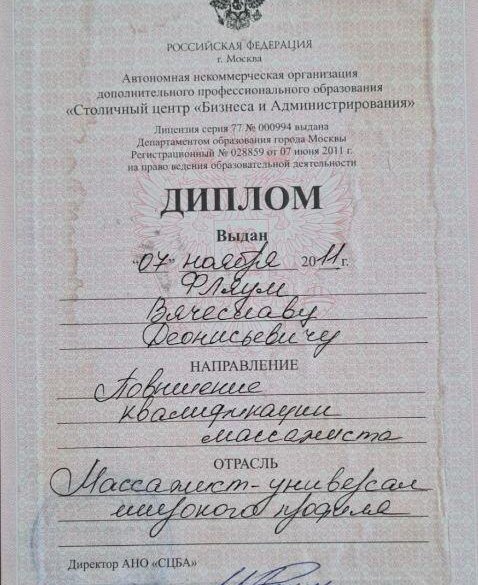 РОССИЙСКАЯ ФЕДЕРАЦИЯ
г. Москва
Автономная некоммерческая организация
дополнительного профессионального образования
«Столичный центр «Бизнеса и Администрирования»
Лицензия серия 77 № 000994 выдана
Департаментом образования города Москвы
Регистрационный № 028859 от 07 июня 2011 г.
на право ведения образовательной деятельности
ДИПЛОМ
Выдан
"07" ноября 2011 г.
Фляум
Вячеславу
Леонисьевичу
НАПРАВЛЕНИЕ
Повышение
квалификации
массажиста
ОТРАСЛЬ
Массажист-универсал
широкого профиля
Директор АНО «СЦБА»